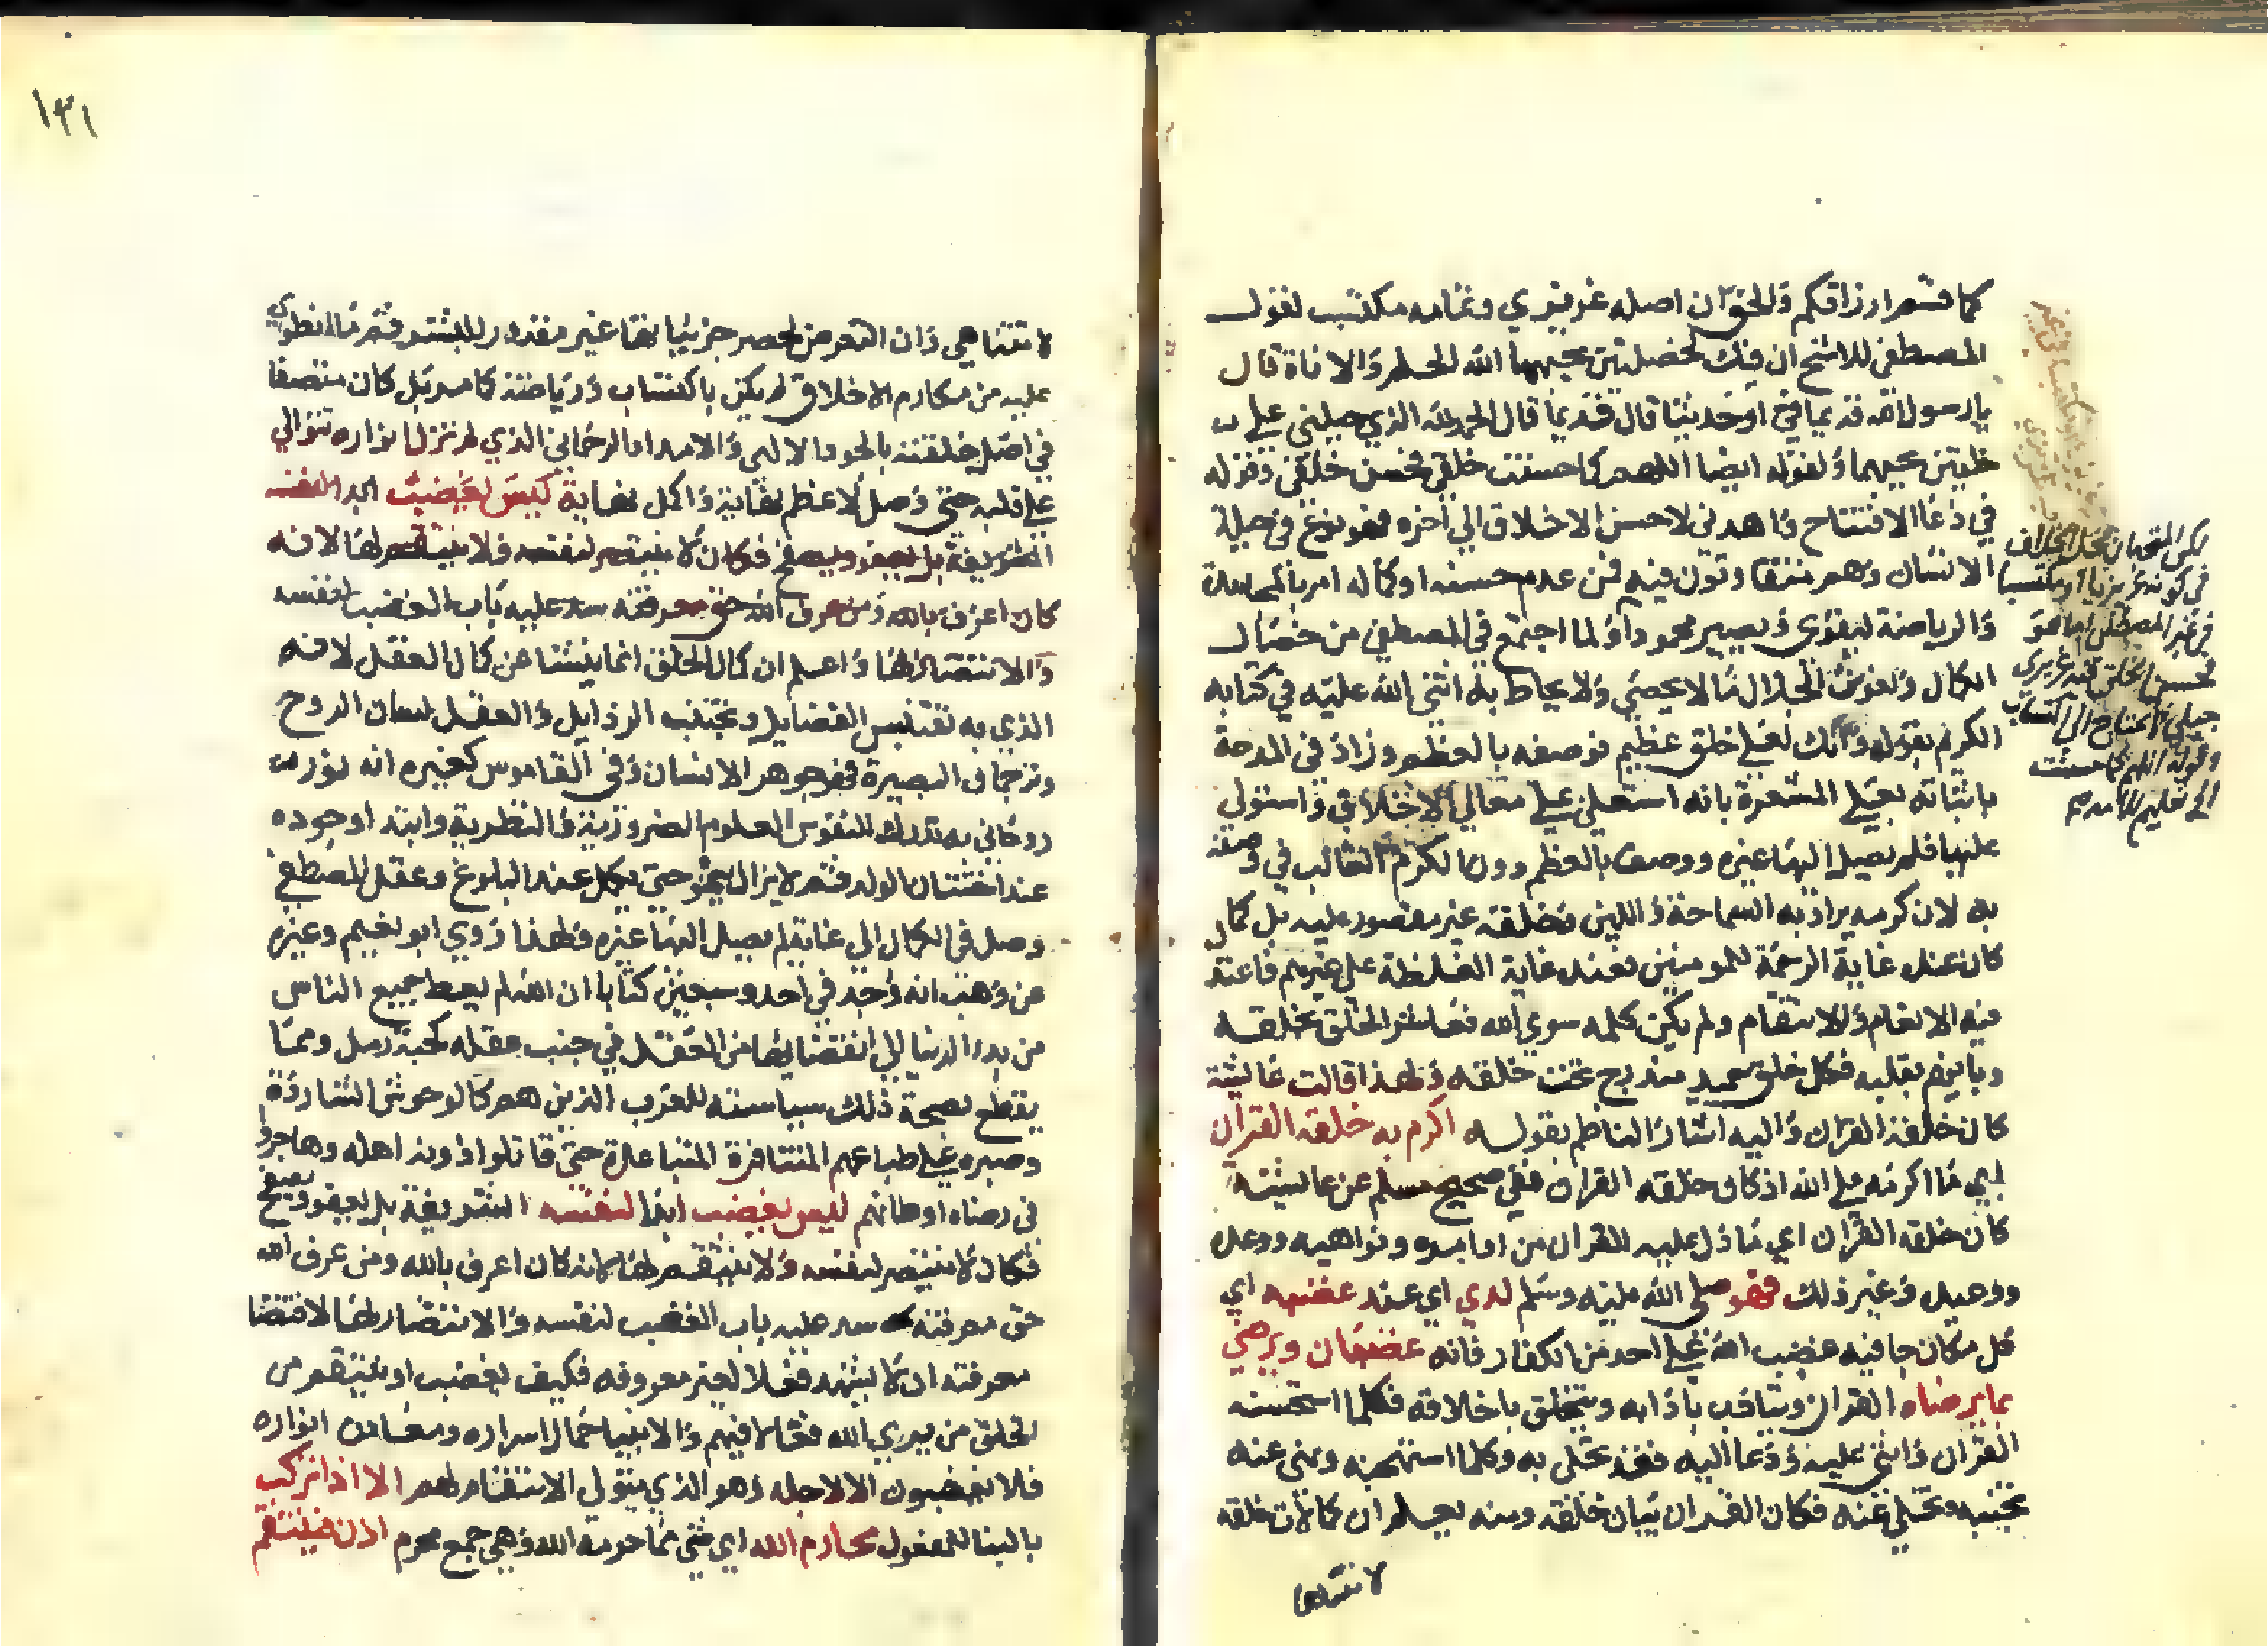 كما قسم ارزاقكم والحق ان اصله غريزي وتمامه مكتسب لقول
المصطفى للاشج ان فيك لخصلتين يحبهما الله الحلم والاناة قال
يا رسول الله قديما في او حديثا قال قديما قال الحمد لله الذي جبلني على
خلقين يحبهما ولقوله ايضا اللهم كما حسنت خلقي فحسن خلقي وقوله
في دعا الافتتاح واهدني لاحسن الاخلاق الى اخره فهو نوع في جبلة
الانسان وهم متفاوتون فيه فمن عدم حسنه او كماله امر بالمجاهدة
والرياضة ليقوى ويصير محمودا ولما اجتمع في المصطفى من خصال
الكمال ونعوت الجلال مالا يحصى ولا يحاط به اثنى الله عليه في كتابه
الكريم بقوله وانك لعلى خلق عظيم فوصفه بالعظم وزاد في المدحة
باتيانه بعلى المشعرة بانه استعلى على معالي الاخلاق واستولى
عليها فلم يصل اليها غيره ووصف بالعظم دون الكرم الغالب في وصفه
به لان كرمه يراد به السماحة واللين وخلقه غير مقصور عليه بل كما
كان عنده غاية الرحمة للمومنين فعنده غاية الغلظة على غيرهم فاعتدل
فيه الانعام والانتقام ولم يكن كلمه سوى الله فعاشر الخلق بخلقه
وباينهم بقلبه فكل خلق حميد مندرج تحت خلقه ولهذا قالت عائشة
كان خلقه القران واليه اشار الناظم بقوله اكرم به خلقه القران
اي ما اكرمه على الله اذ كان خلقه القران ففي صحيح مسلم عن عايشة
كان خلقه القران اي ما دل عليه القران من اوامره ونواهيه ووعده
ووعيده وغير ذلك فهو صلى الله عليه وسلم لدي اي عند غضبه اي
كل مكان جا فيه غضب الله على احد من الكفار فانه غضبان ويرضى
بما يرضاه القران ويتادب بادابه ويتخلق باخلاقه فكلما استحسنه
القران واثنى عليه ودعا اليه فقد تحلى به وكلما استهجنه ونهى عنه
تجنبه وتخلى عنه فكان القران بيان خلقه ومنه يعلم ان كمالات خلقه
لا تتناهى
لكن المتجه ان محل الخلاف
في كونه غريزيا او مكتسبا
في غير المصطفى اما هو
فحسن الخلق فيه غريزي
جبلي لا يحتاج الى اكتساب
وقوله اللهم كما حسنت
الخ تعليم للامة
١٣١
لا تتناهى وان التعرض لحصر جزئياتها غير مقدور للبشر ثم ما انطوى
عليه من مكارم الاخلاق لم يكن باكتساب ورياضة كما مر بل كان متصفا
في اصل خلقته بالجود الالهي والامداد الرحماني الذي لم تزل انواره تتوالى
على قلبه حتى وصل لاعظم نهاية واكمل نهاية ليس يغضب ابدا لنفسه
الشريفة بل يعفو ويصفح فكان لا ينتصر لنفسه ولا ينتقم لها لانه
كان اعرف بالله ومن عرف الله حق معرفته سد عليه باب الغضب لنفسه
والانتصار لها واعلم ان كمال الخلق انما ينشا عن كمال العقل لانه
الذي به تقتبس الفضايل وتجتنب الرذايل والعقل لسان الروح
وترجمان البصيرة فهو جوهر الانسان وفي القاموس كغيره انه نور
روحاني به تدرك النفوس العلوم الضرورية والنظرية وابتدا وجوده
عند اجتنان الولد ثم لا يزال ينمو حتى يكمل عند البلوغ وعقل المصطفى
وصل في الكمال الى غاية لم يصل اليها غيره فلهذا روى ابو نعيم وغيره
عن وهب انه وجد في احد وسبعين كتابا ان الله لم يعط جميع الناس
من بدء الدنيا الى انقضايها من العقل في جنب عقله كحبة رمل ومما
يقطع بصحة ذلك سياسته للعرب الذين هم كالوحوش الشاردة
وصبره على طباعهم المتنافرة المتباعدة حتى قاتلوا دونه اهله وهاجروا
في رضاه اوطانهم ليس يغضب ابدا لنفسه الشريفة بل يعفو ويصفح
فكان لا ينتصر لنفسه ولا ينتقم لها لانه كان اعرف بالله ومن عرف الله
حق معرفته سد عليه باب الغضب لنفسه والانتصار لها لاقتضا
معرفته ان لا يشهد فعلا لغير معروفه فكيف يغضب او ينتقم من
الخلق من يرى الله فعالا فيهم والانبيا حمال اسراره ومعادن انواره
فلا يغضبون الا لاجله وهو الذي يتولى الانتقام لهم الا اذا تركب
بالبنا للمفعول محارم الله اي شي مما حرمه الله وهي جمع محرم اذن فينتقم